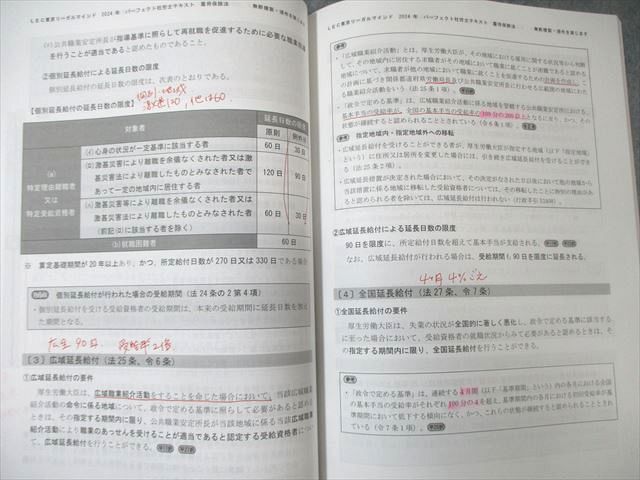 LEC東京リーガルマインド 2024年 パーフェクト社労士テキスト 雇用保険法
無断複製・頒布を禁じます
(ｲ)公共職業安定所長が指導基準に照らして再就職を促進するために必要な職業指導
を行うことが適当であると認めたものであること。
②個別延長給付による延長日数の限度
個別延長給付の延長日数の限度は、次表のとおりである。
個別・地域
激甚120, 他は60
【個別延長給付の延長日数の限度】
対象者
延長日数の限度
原則
例外※
(a)
特定理由離職者
又は
特定受給資格者
(ｲ)心身の状況が一定基準に該当する者
60日
30日
(ﾛ)激甚災害により離職を余儀なくされた者又は激
甚災害法により離職したものとみなされた者で
あって一定の地域内に居住する者
120日
90日
(ﾊ)激甚災害等により離職を余儀なくされた者又は
激甚災害法により離職したものとみなされた者
(前記(ﾛ)に該当する者を除く)
60日
30日
(b)就職困難者
60日
※ 算定基礎期間が20年以上あり、かつ、所定給付日数が270日又は330日である場合
個別延長給付が行われた場合の受給期間(法24条の2第4項)
・個別延長給付を受ける受給資格者の受給期間は、本来の受給期間に延長日数を加え
た期間となる。
広全90日 受給率2倍
〔3〕広域延長給付(法25条、令6条)
①広域延長給付の要件
厚生労働大臣は、広域職業紹介活動をすることを命じた場合において、当該広域職業
紹介活動の命令に係る地域について、政令で定める基準に照らして必要があると認める
ときは、その指定する期間内に限り、公共職業安定所長が当該地域に係る広域職業
紹介活動により職業のあっせんを受けることが適当であると認定する受給資格者につい
て、広域延長給付を行うことができる。
LEC東京リーガルマインド 2024年 パーフェクト社労士テキスト 雇用保険法
無断複製・頒布を禁じます
参考
・「広域職業紹介活動」とは、厚生労働大臣が、その地域における雇用に関する状況等から判断
して、その地域内に居住する求職者がその地域において職業に就くことが困難であると認める
地域について、求職者が他の地域において職業に就くことを促進するための計画を作成し、
この計画に基づき関係都道府県労働局長及び公共職業安定所長に行わせる広範囲の地域にわたる
職業紹介活動をいう(法25条1項)。
・「政令で定める基準」は、広域職業紹介活動に係る地域を管轄する公共職業安定所における
基本手当の受給率が、全国の基本手当の受給率の100分の200以上となるに至り、かつ、その
状態が継続すると認められることとされている(令6条1項)。
参考 指定地域内・指定地域外への移転
・広域延長給付を受けることができる者が、厚生労働大臣が指定する地域(以下「指定地域」
という)に住所又は居所を変更した場合には、引き続き広域延長給付を受けることができ
る(法25条2項)。
・広域延長措置が決定された場合において、その決定がなされた日以後において他の地域から
当該措置に係る地域に移転した受給資格者については、その移転したことに特別の理由があ
ると認められる者を除いては、広域延長給付は行われない(行政手引52408)。
②広域延長給付による延長日数の限度
90日を限度に、所定給付日数を超えて基本手当が支給される。
なお、広域延長給付が行われる場合は、受給期間も90日を限度に延長される。
4ヶ月 4%ごえ
〔4〕全国延長給付(法27条、令7条)
①全国延長給付の要件
厚生労働大臣は、失業の状況が全国的に著しく悪化し、政令で定める基準に該当する
に至った場合において、受給資格者の就職状況からみて必要があると認めるときは、そ
の指定する期間内に限り、全国延長給付を行うことができる。
参考
・「政令で定める基準」は、連続する4月間(以下「基準期間」という)の各月における全国
の基本手当の受給率がそれぞれ100分の4を超え、基準期間の各月における初回受給率が基
準期間において低下する傾向になく、かつ、これらの状態が継続すると認められることとされ
ている(令7条1項)。